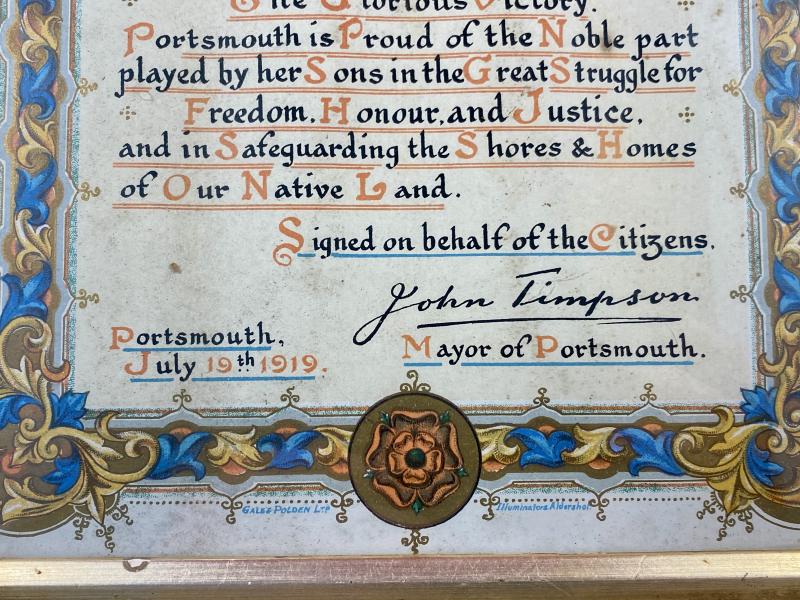 The Glorious Victory.
Portsmouth is Proud of the Noble part
played by her Sons in the Great Struggle for
Freedom, Honour, and Justice,
and in Safeguarding the Shores & Homes
of Our Native Land.
Signed on behalf of the Citizens.
John Timpson
Mayor of Portsmouth.
Portsmouth,
July 19th 1919.
GALE & POLDEN LTD
Illuminators Aldershot